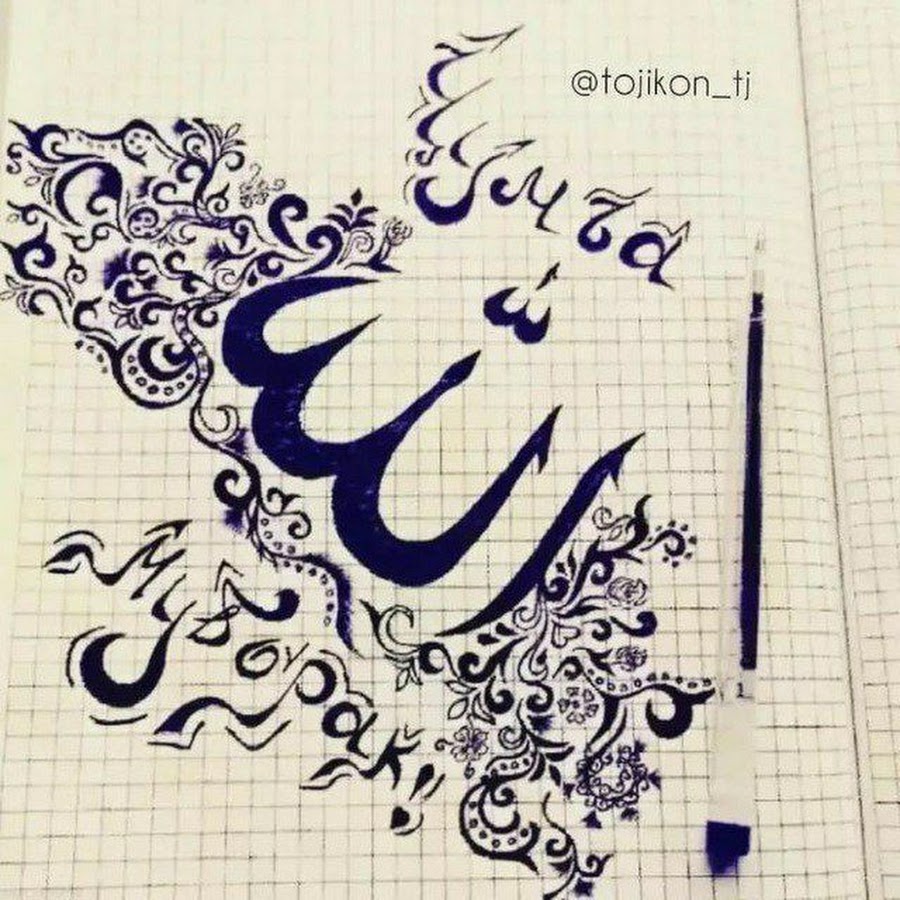 @tojikon_tj
Ҷумъа
الله
Муборак!!